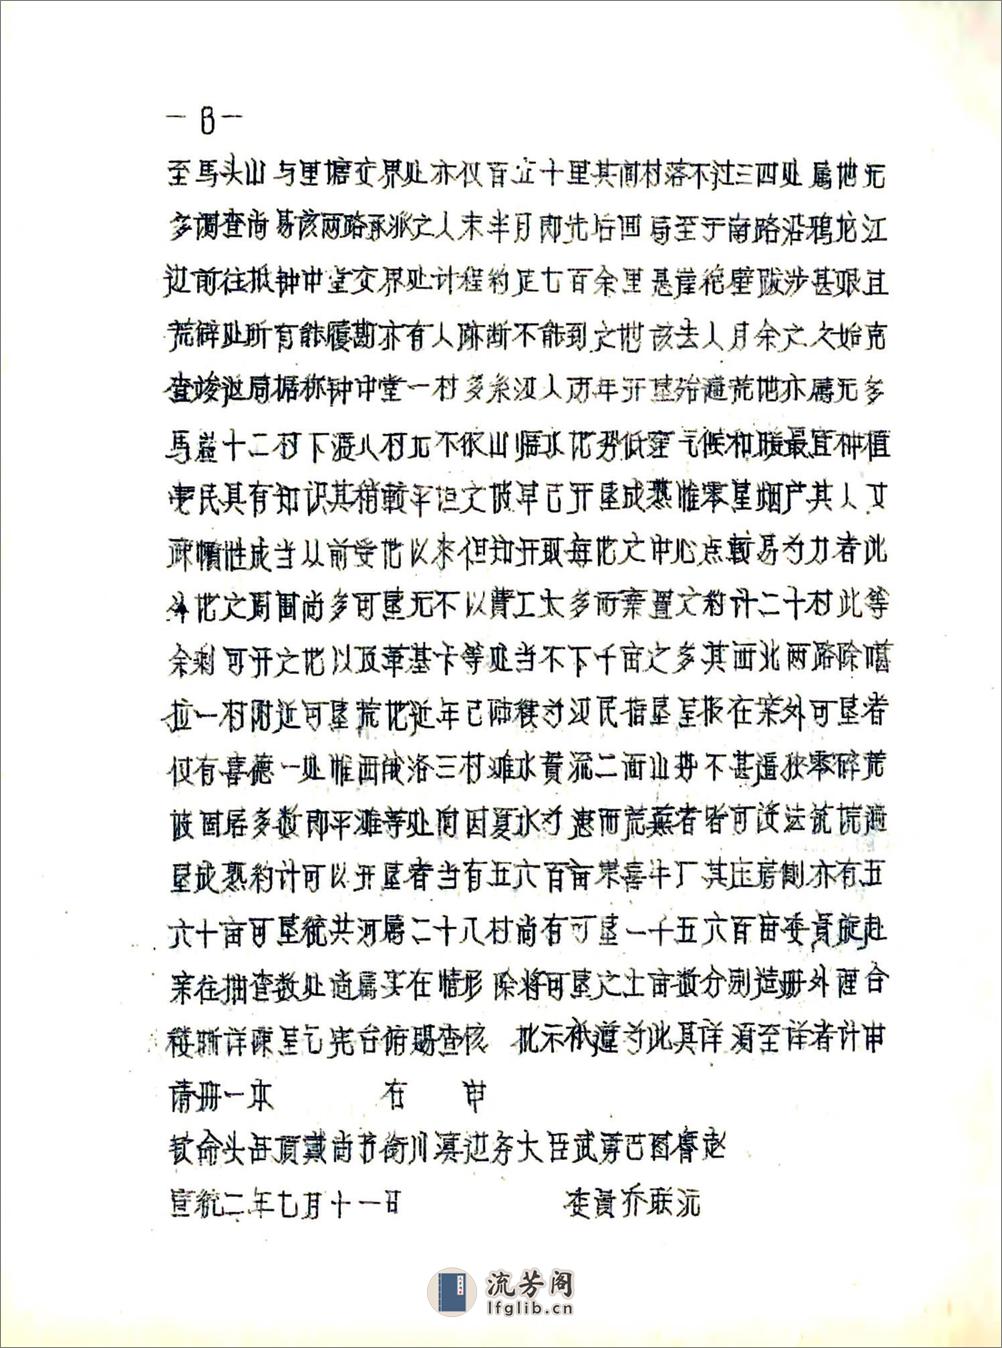 -8-
至马头山与里塘交界处亦仅百五十里其间村落不过三四处属地无
多调查尚易该两路承派之人未半月即先后回局至于南路沿鸦龙江
边前往抵钟中堂交界处计程约足七百余里悬崖绝壁跋涉甚艰且
荒僻处所有能履勘亦有人踪断不能到之地该去人月余之久始克
查竣返局据称钟中堂一村多系汉人历年开垦殆遍荒地亦属无多
马岩十二村下渡八村无不依山临水地势低窪气候和暖最宜种植
蛮民具有知识其稍较平坦之坡早已开垦成熟惟零星烟产其人又
疎惰性成当从前受地以来但知开取每地之中心点较易为力者此
外地之周围尚多可垦无不以费工太多而弃置之约计二十村此等
余剩可开之地以及革基卡等处当不下千亩之多其西北两路除噶
拉一村附近可垦荒地近年已师稞为汉民指垦呈报在案外可垦者
仅有喜德一处惟西俄洛三村滩水贯流二面山势不甚逼狭零碎荒
坡固居多数即平滩等处间因夏水为患而荒芜者皆可设法筑堤遍
垦成熟约计可以开垦者当有五六百亩崇喜牛厂其庄房侧亦有五
六十亩可垦统共河属二十八村尚有可垦一千五六百亩委员旋赴
亲往抽查数处适属实在情形 除将可垦之土亩数分别造册外理合
缕晰详陈呈乞宪台俯赐查核 批示祇遵为此具详须至详者计申
清册一本 右 申
钦命头品顶戴尚书衔川滇边务大臣武勇巴图鲁赵
宣统二年七月十一日 委员乔联沅
流芳阁
lfglib.cn